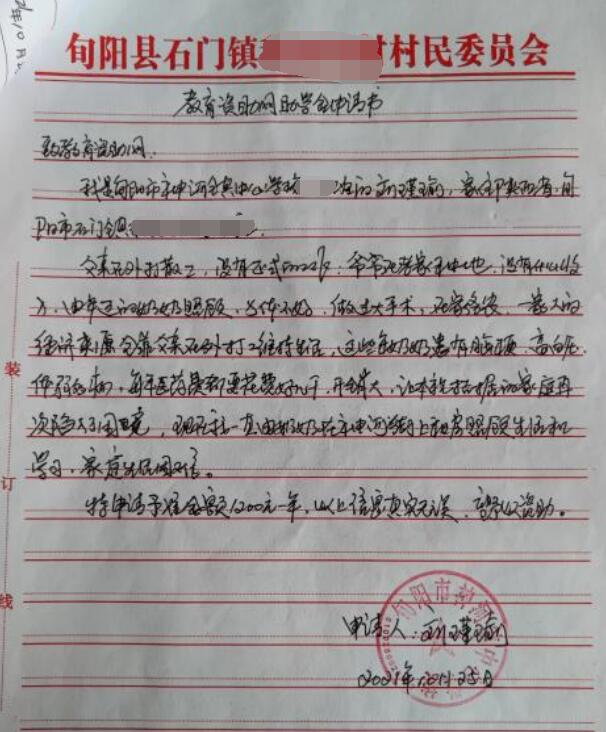 年10月
旬阳县石门镇 村村民委员会
教育资助网助学金申请书
致教育资助网:
我是旬阳市 中心学校 的 家住陕西省旬
阳市石门镇
父亲在外打散工,没有正式的工作,爷爷在老家种地,没有什么收
入,由年迈的奶奶照顾,身体不好,做过大手术,在家务农,一家人的
经济来源全靠父亲在外打工维持生活,这些年奶奶患有 高血压
病,每年医药费都要花费好几千,开销大,让本就拮据的家庭再
次陷入了困境,现在我一直由奶奶在 街上租房照顾生活和
学习,家庭生活困难。
特申请予准金额1200元一年,以上信息真实无误,望予以资助。
装
订
线
旬阳市
申请人:刘瑾瑜
2021年 月25日